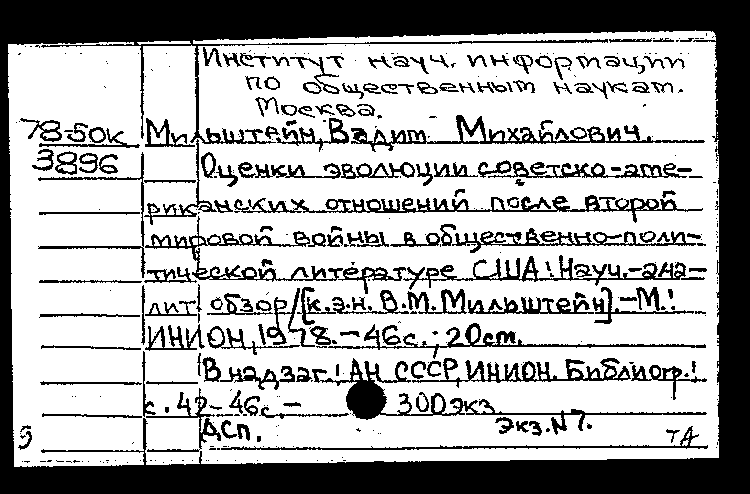 Институт науч. информации
по общественным наукам.
Москва.
78-50к Мильштейн, Вадим Михайлович.
3896 Оценки эволюции советско-аме-
риканских отношений после второй
мировой войны в общественно-поли-
тической литературе США: Науч.-ана-
лит обзор/[к.э.н. В.М. Мильштейн].-М.:
ИНИОН, 1978.-46с.; 20см.
В надзаг.: АН СССР, ИНИОН. Библиогр.:
с. 42-46с.- 300экз.
ДСП. Экз. N7.
5 ТА